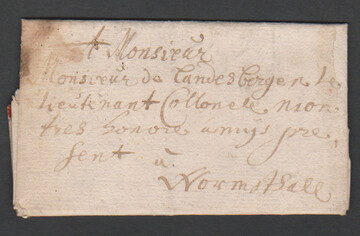 A Monsieur
Monsieur de Landesbergen Le
Lieutenant Collonele mon
tres honore amijs pre
sent a
Wormsthall